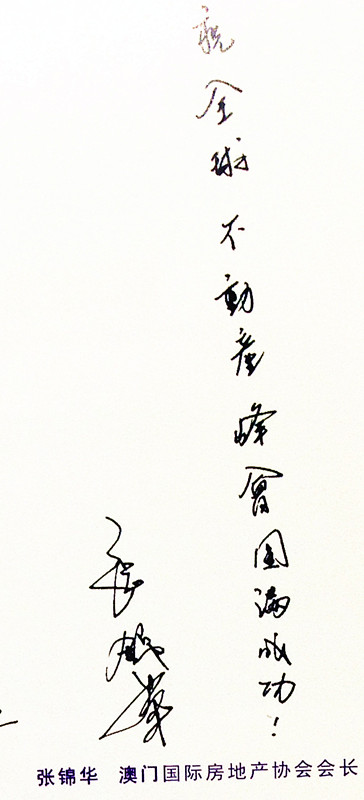 祝全球不動產峰會圓滿成功!
張錦華
张锦华 澳门国际房地产协会会长